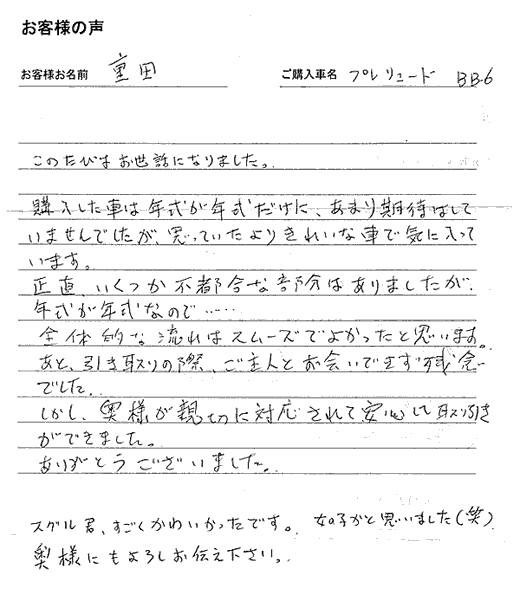 お客様の声
お客様お名前 重田 ご購入車名 プレリュード BB6
このたびはお世話になりました。
購入した車は年式が年式だけに、あまり期待はして
いませんでしたが、思っていたよりきれいな車で気に入って
います。
正直、いくつか不都合な部分はありましたが、
年式が年式なので……
全体的な流れはスムーズでよかったと思います。
あと、引き取りの際、ご主人とお会いできず残念
でした。
しかし、奥様が親切に対応されて安心して取り引き
ができました。
ありがとうございました。
スグル君、すごくかわいかったです。女の子かと思いました(笑)
奥様にもよろしくお伝え下さい。